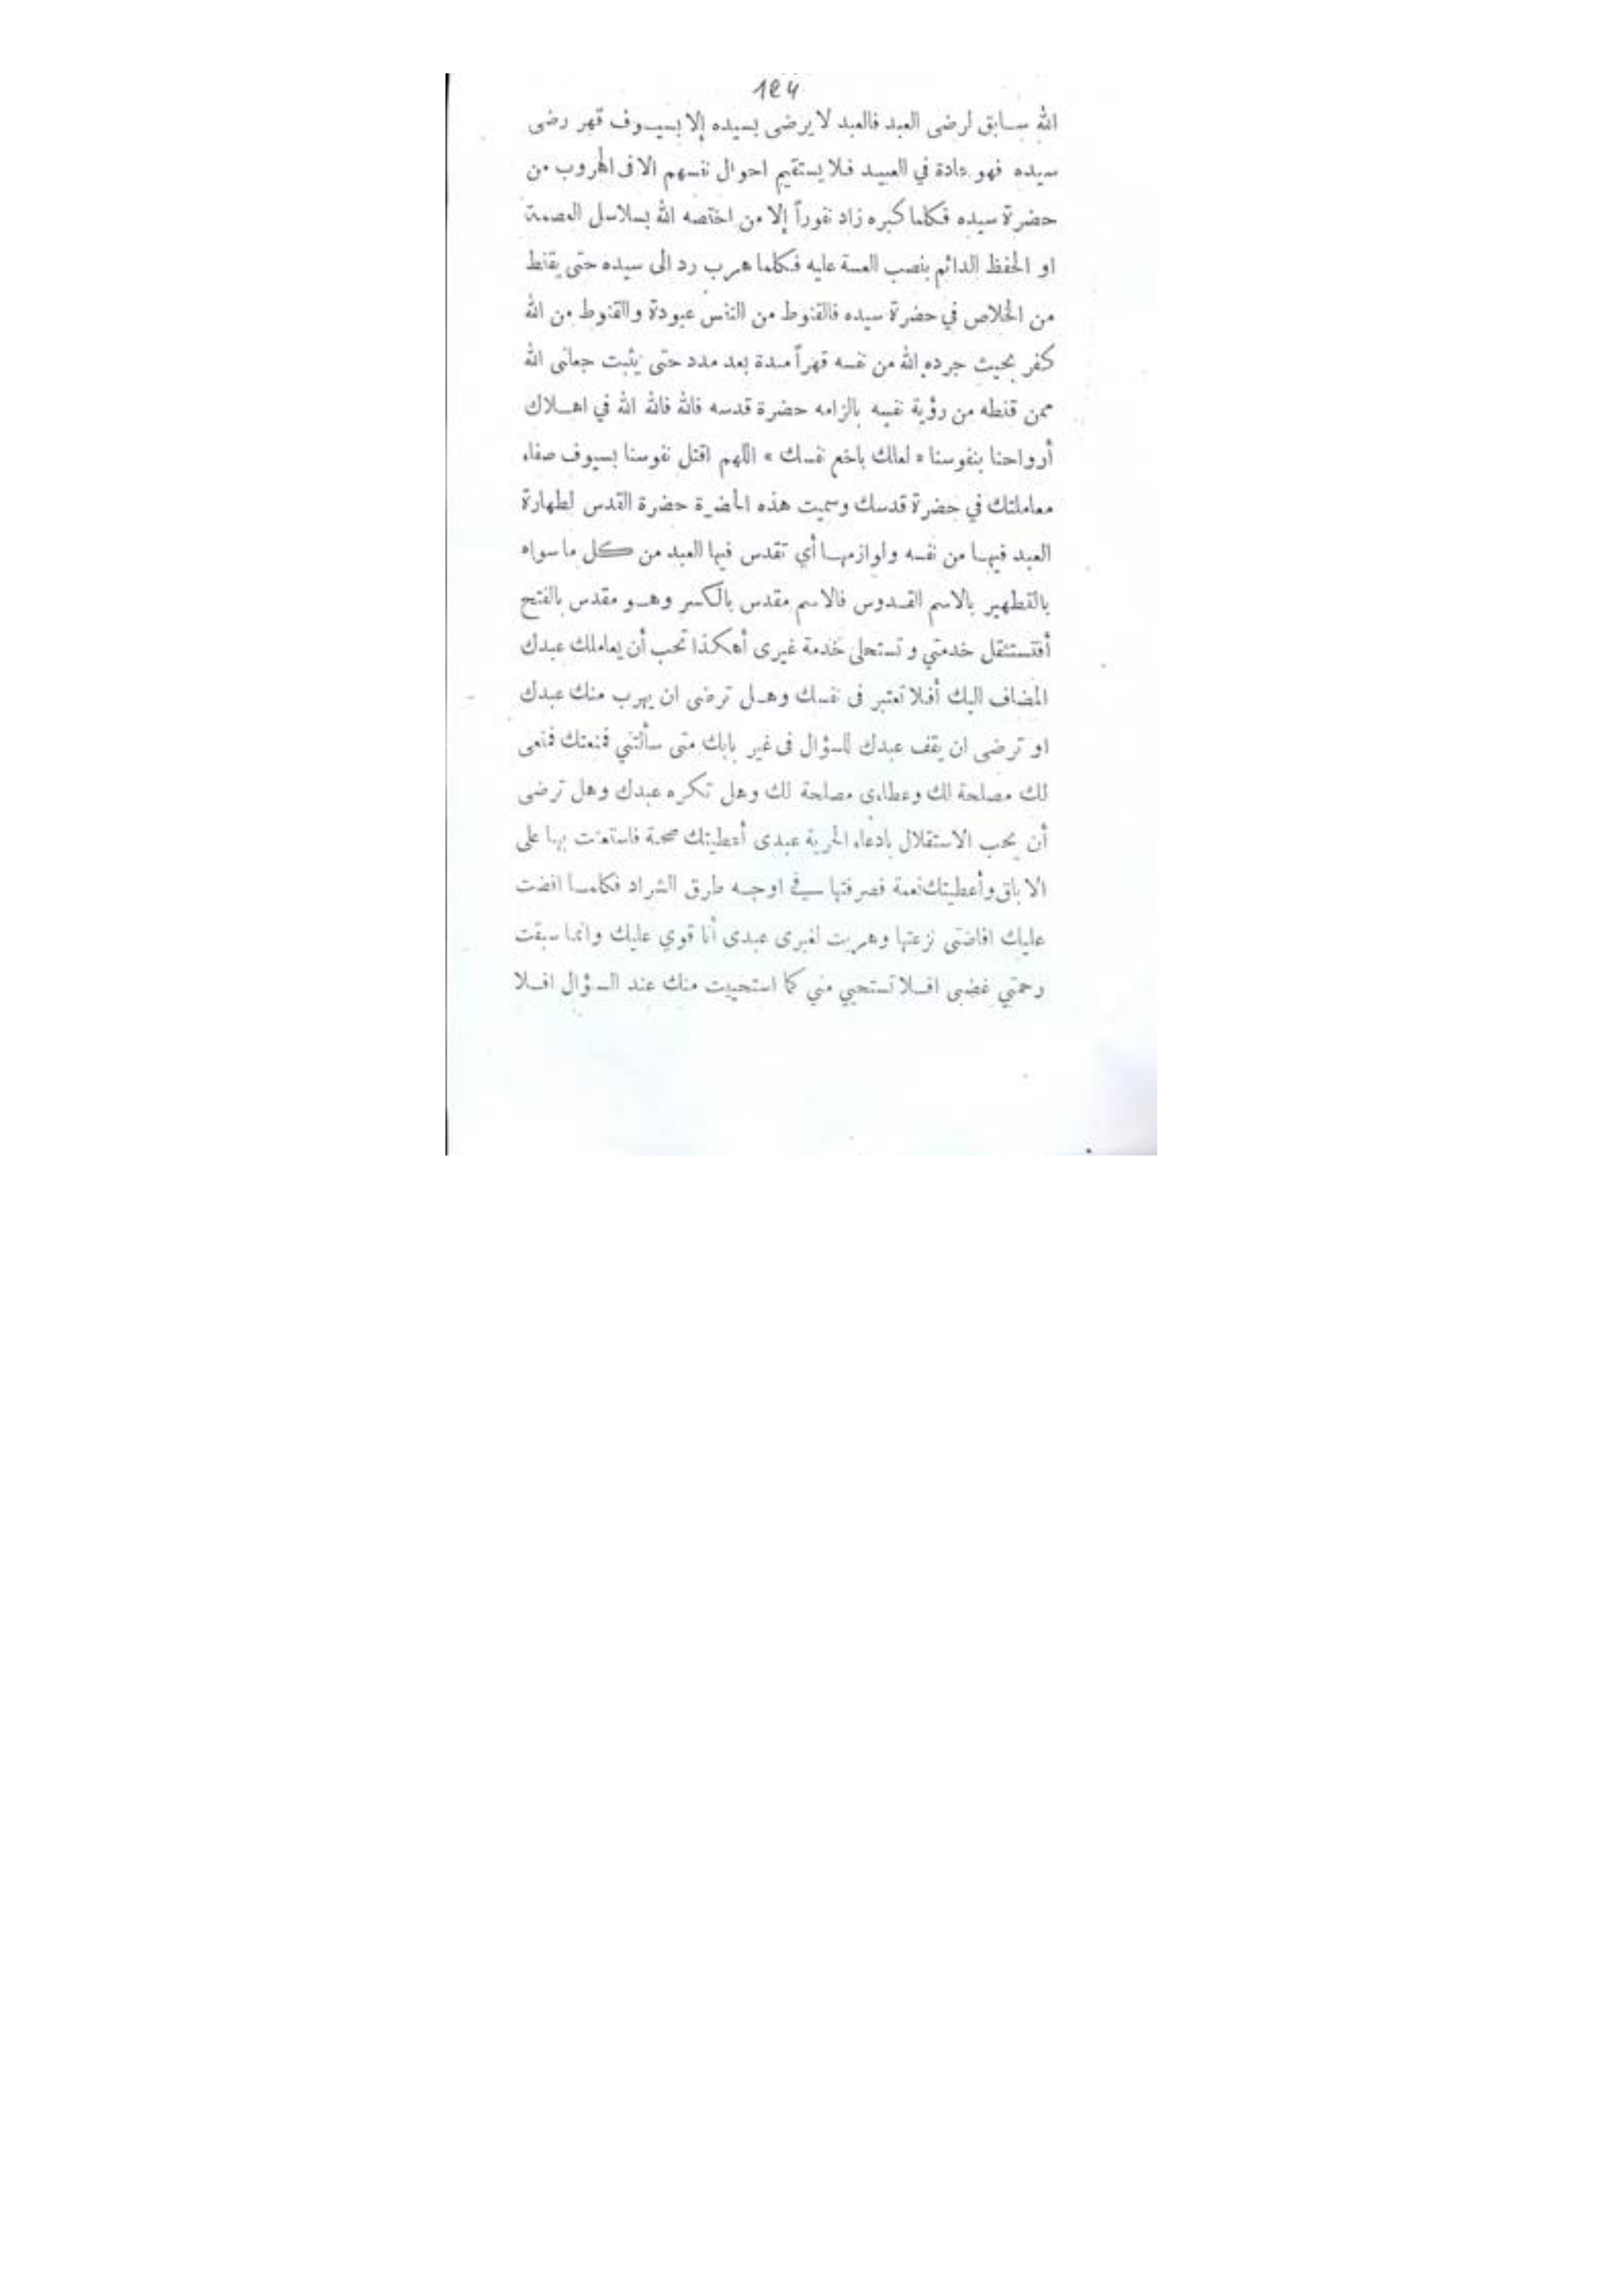 124
الله سابق لرضى العبد فالعبد لا يرضى بسيده إلا بسيوف قهر رضى
سيده فهو عادة في العبيد فلا يستقيم احوال نفسهم الا فى الهروب من
حضرة سيده فكلما كبره زاد نفوراً إلا من اختصه الله بسلاسل العصمة
او الحفظ الدائم بنصب العسة عليه فكلما هرب رد الى سيده حتى يقنط
من الخلاص في حضرة سيده فالقنوط من النفس عبودة والقنوط من الله
كفر بحيث جرده الله من نفسه قهراً مدة بعد مدد حتى يثبت جعلنى الله
ممن قنطه من رؤية نفسه بالزامه حضرة قدسه فالله فالله الله في اهلاك
أرواحنا بنفوسنا « لعلك باخع نفسك » اللهم اقتل نفوسنا بسيوف صفاء
معاملتك في حضرة قدسك وسميت هذه الحضرة حضرة القدس لطهارة
العبد فيها من نفسه ولوازمها أي تقدس فيها العبد من كل ما سواه
بالتطهير بالاسم القدوس فالاسم مقدس بالكسر وهو مقدس بالفتح
أفتستثقل خدمتي وتستحلى خدمة غيرى أهكذا تحب أن يعاملك عبدك
المضاف اليك أفلا تعتبر فى نفسك وهل ترضى ان يهرب منك عبدك
او ترضى ان يقف عبدك للسؤال فى غير بابك متى سألتني فمنعتك فمنعى
لك مصلحة لك وعطاءى مصلحة لك وهل تكره عبدك وهل ترضى
أن يحب الاستقلال بادعاء الحرية عبدى أعطيتك صحة فاستعنت بها على
الاباق وأعطيتك نعمة فصرفتها في اوجه طرق الشراد فكلما افضت
عليك افاضتى نزعتها وهربت لغيرى عبدى أنا قوي عليك وانما سبقت
رحمتي غضبى افلا تستحيي مني كما استحييت منك عند السؤال افلا